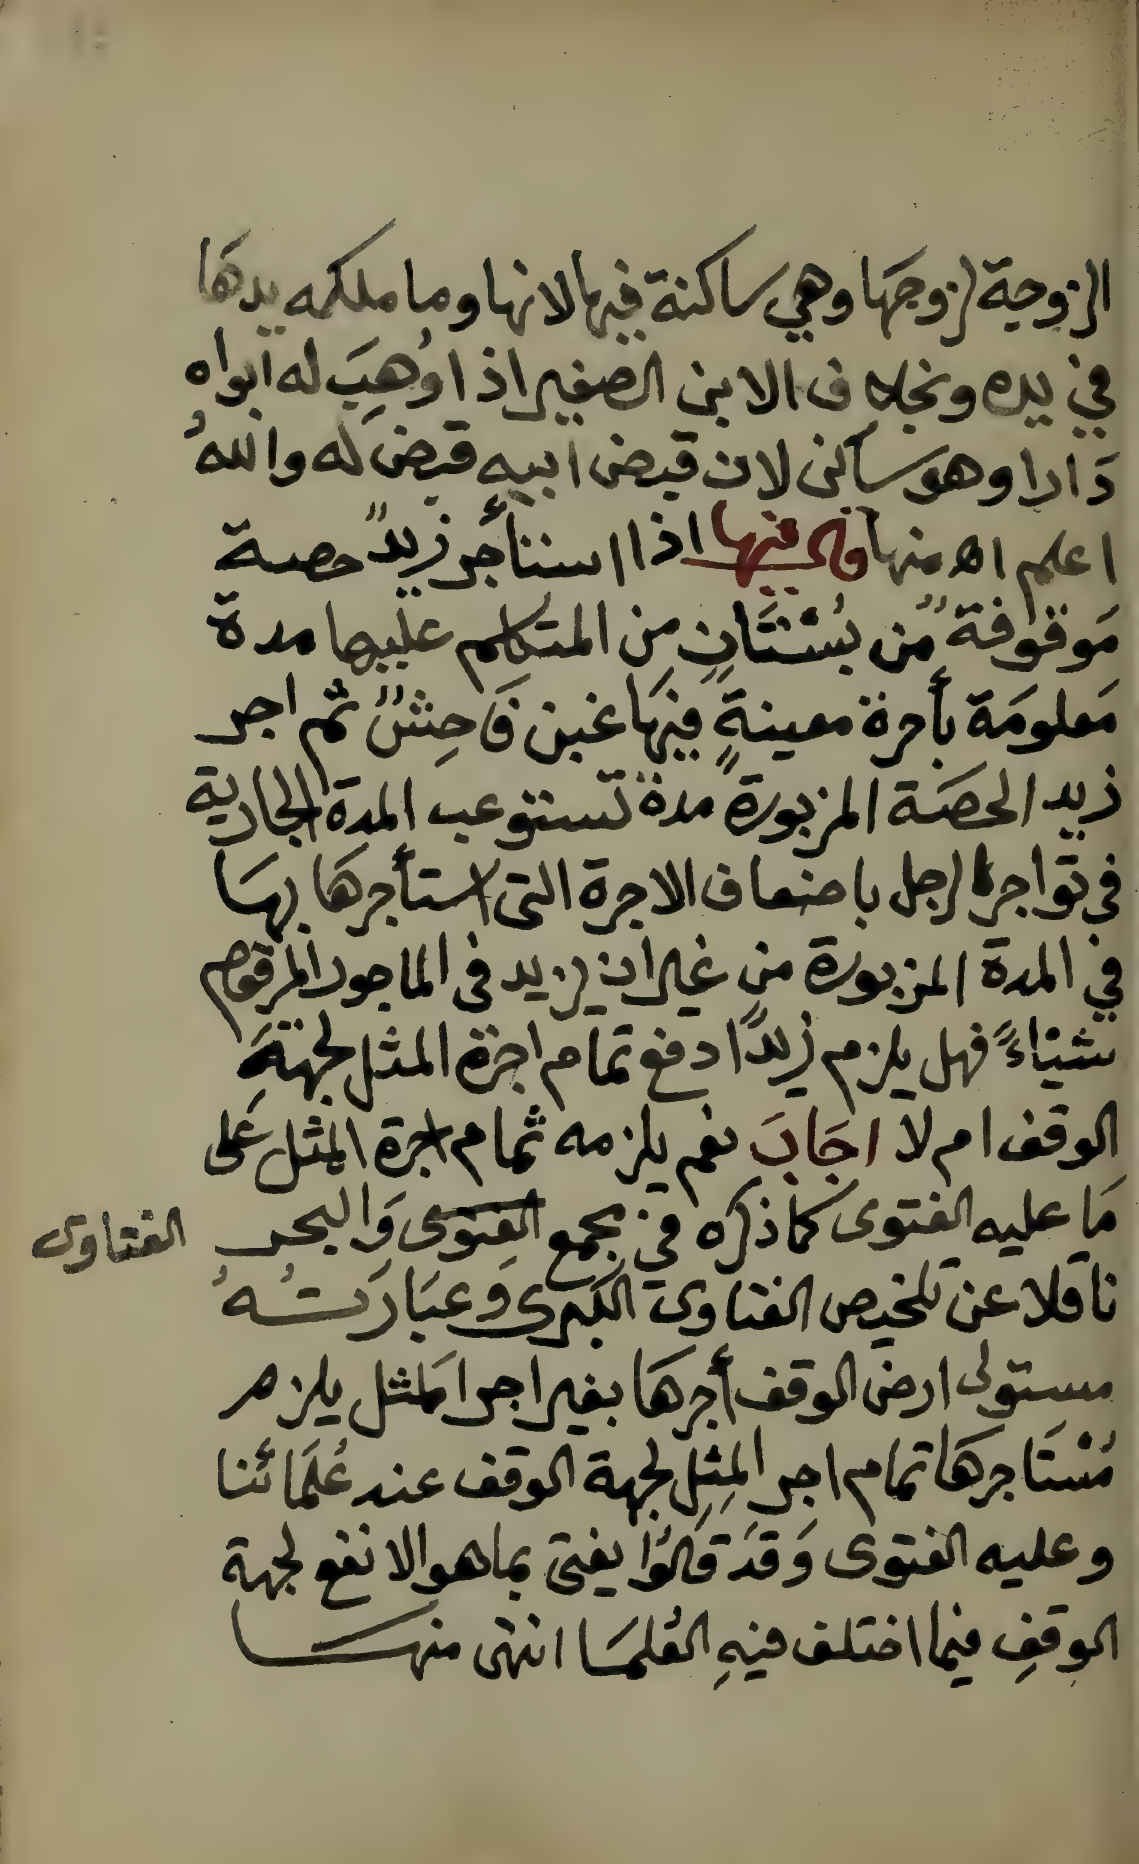 الزوجة لزوجها وهي ساكنة فيها لانها وما ملكه يدها
في يده وبخلاف الابن الصغير اذا وُهِبَ له ابواه
دَارا وهو ساكن لان قبض ابيه قبض له واللهُ
اعلم اه منها وفي فيها اذا استأجر زيدٌ حصة
مَوقوفةً من بُسْتَانٍ من المتكلم عليها مدة
مَعلومَة بأجرة معينةٍ فيهَا غبن فَاحِشٌ ثم اجر
زيد الحصَة المزبورة مدة تستوعب المدة الجارية
في تواجره لرجل باضعاف الاجرة التي استأجرهَا بهَا
في المدة المزبورة من غير ان يزيد في الماجور المرقوم
شيئاءً فهل يلزم زيدًا دفع تمام اجرة المثل لجهةِ
الوقف ام لا اجَابَ نعم يلزمه تمام اجرة المثل عَلى
مَا عليه الفتوى كما ذكره في مجمع الفتوى وَالبحر
الفتاوى
ناقلا عن تلخيص الفتاوى الكبرى وَعبَارَتُهُ
مستولى ارض الوقف أجرهَا بغير اجر المثل يلزم
مُسْتَاجرهَا تمام اجر المِثلِ لجهة الوقف عند عُلَمَائنا
وعليه الفتوى وَقدَ قَالوُا يفتى بما هو الانفع لجهة
الوقفِ فيما اختلف فيهِ العُلمَا انتهى منهَا